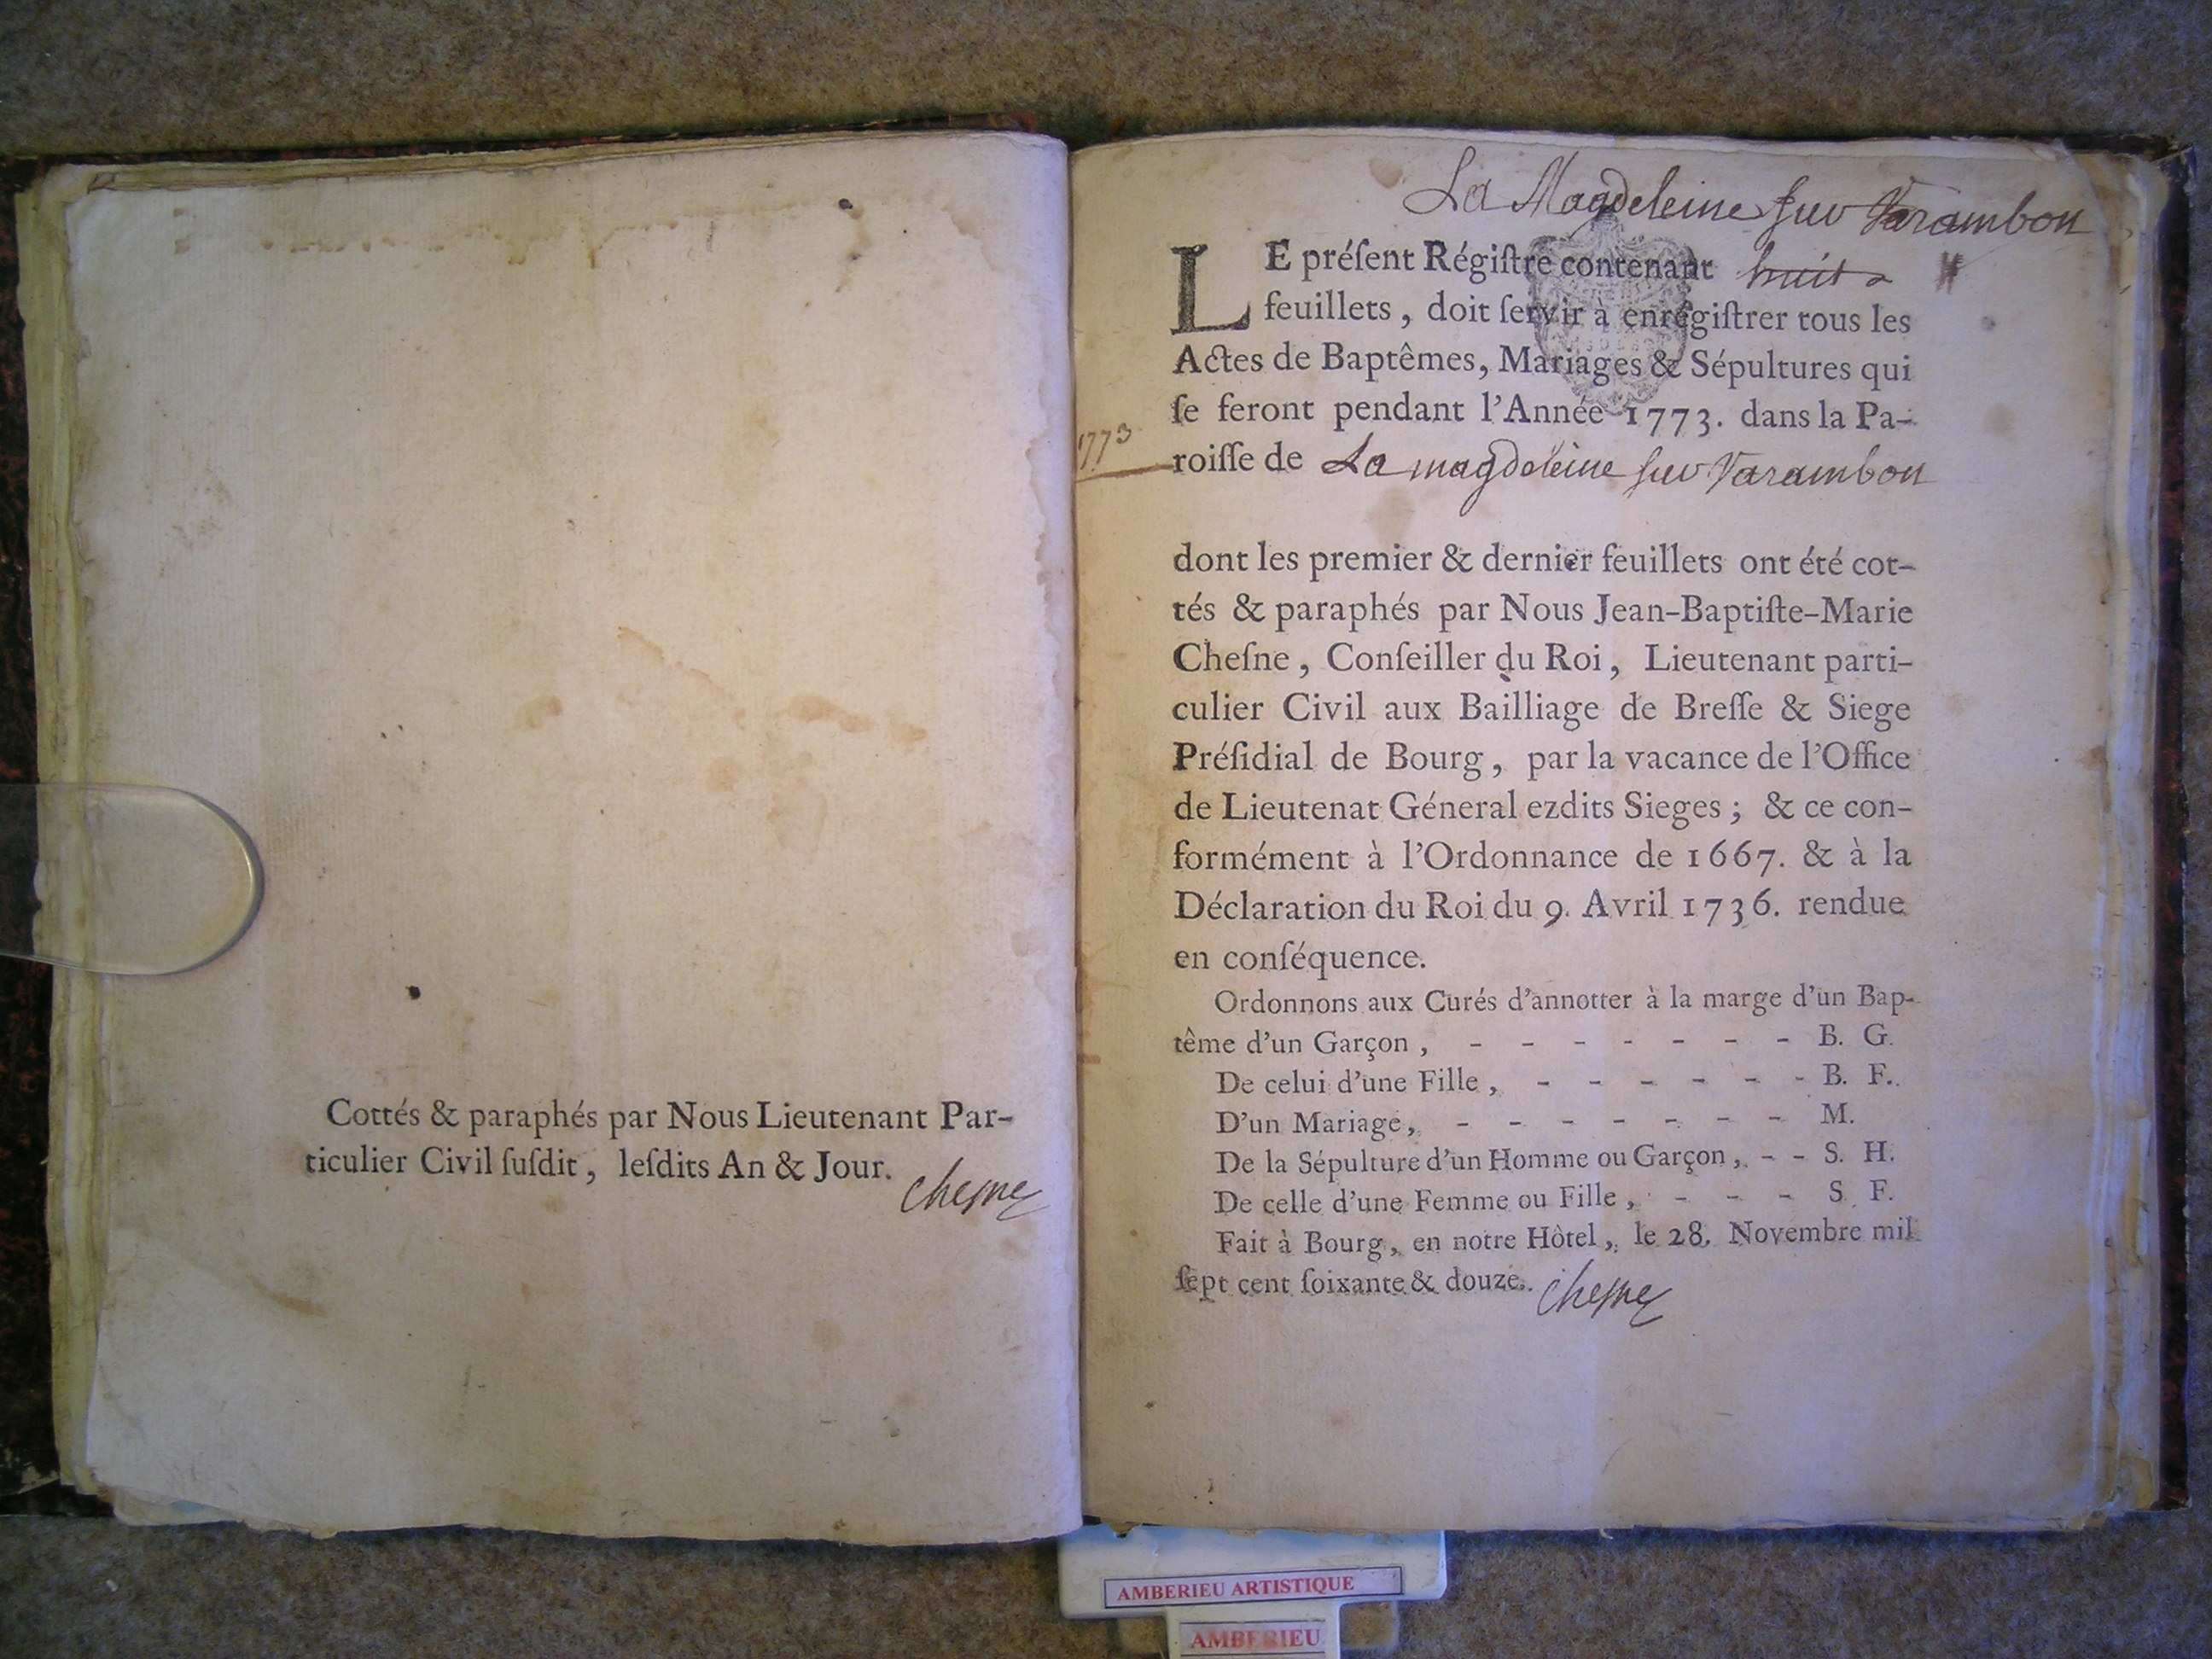 Cottés & paraphés par Nous Lieutenant Par-
ticulier Civil ſuſdit, leſdits An & Jour.
Chesne
La Magdeleine sur Varambon
LE préſent Régiſtre contenant huit
feuillets, doit ſervir à enrégiſtrer tous les
Actes de Baptêmes, Mariages & Sépultures qui
ſe feront pendant l'Année 1773. dans la Pa-
1773
roiſſe de La magdeleine sur Varambon
dont les premier & dernier feuillets ont été cot-
tés & paraphés par Nous Jean-Baptiſte-Marie
Cheſne, Conſeiller du Roi, Lieutenant parti-
culier Civil aux Bailliage de Breſſe & Siege
Préſidial de Bourg, par la vacance de l'Office
de Lieutenat Géneral ezdits Sieges; & ce con-
formément à l'Ordonnance de 1667. & à la
Déclaration du Roi du 9. Avril 1736. rendue
en conſéquence.
Ordonnons aux Curés d'annotter à la marge d'un Bap-
tême d'un Garçon, - - - - - - - B. G.
De celui d'une Fille, - - - - - - B. F.
D'un Mariage, - - - - - - - M.
De la Sépulture d'un Homme ou Garçon, - - S. H.
De celle d'une Femme ou Fille, - - - S. F.
Fait à Bourg, en notre Hôtel, le 28. Novembre mil
ſept cent ſoixante & douze. Chesne
AMBERIEU ARTISTIQUE
AMBERIEU